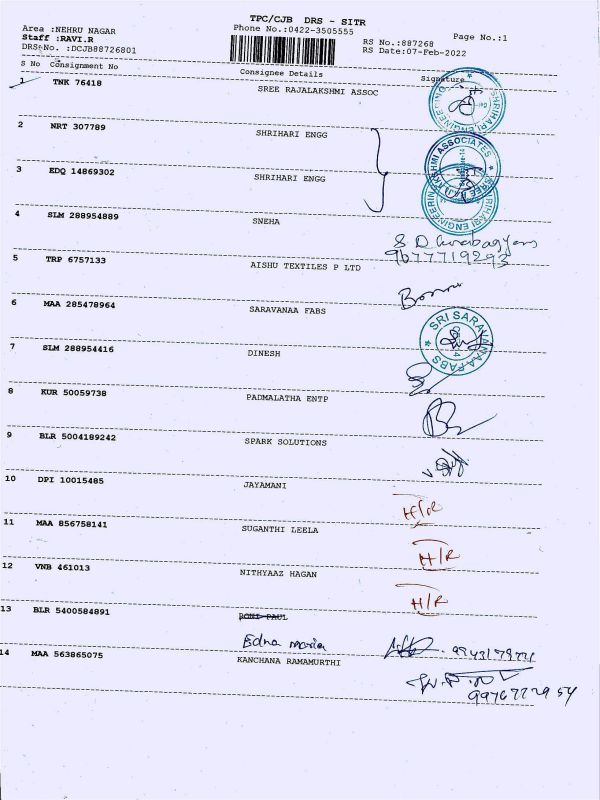 TPC/CJB DRS - SITR
Area :NEHRU NAGAR Phone No.:0422-3505555 Page No.:1
Staff :RAVI.R RS No.:887268
DRS No. :DCJB88726801 RS Date:07-Feb-2022
S No Consignment No Consignee Details Signature
1 TNK 76418 SREE RAJALAKSHMI ASSOC
SHRIHARI ENGINEERING
2 NRT 307789 SHRIHARI ENGG
ASSOCIATES
3 EDQ 14869302 SHRIHARI ENGG
SHRIHARI ENGINEERING
4 SLM 288954889 SNEHA
S D
9677719293
5 TRP 6757133 AISHU TEXTILES P LTD
6 MAA 285478964 SARAVANAA FABS
SRI SARAVANAA FABS
7 SLM 288954416 DINESH
8 KUR 50059738 PADMALATHA ENTP
9 BLR 5004189242 SPARK SOLUTIONS
10 DPI 10015485 JAYAMANI H/R
11 MAA 856758141 SUGANTHI LEELA H/R
12 VNB 461013 NITHYAAZ HAGAN H/R
13 BLR 5400584891 RONI PAUL
Edna maria
14 MAA 563865075 KANCHANA RAMAMURTHI